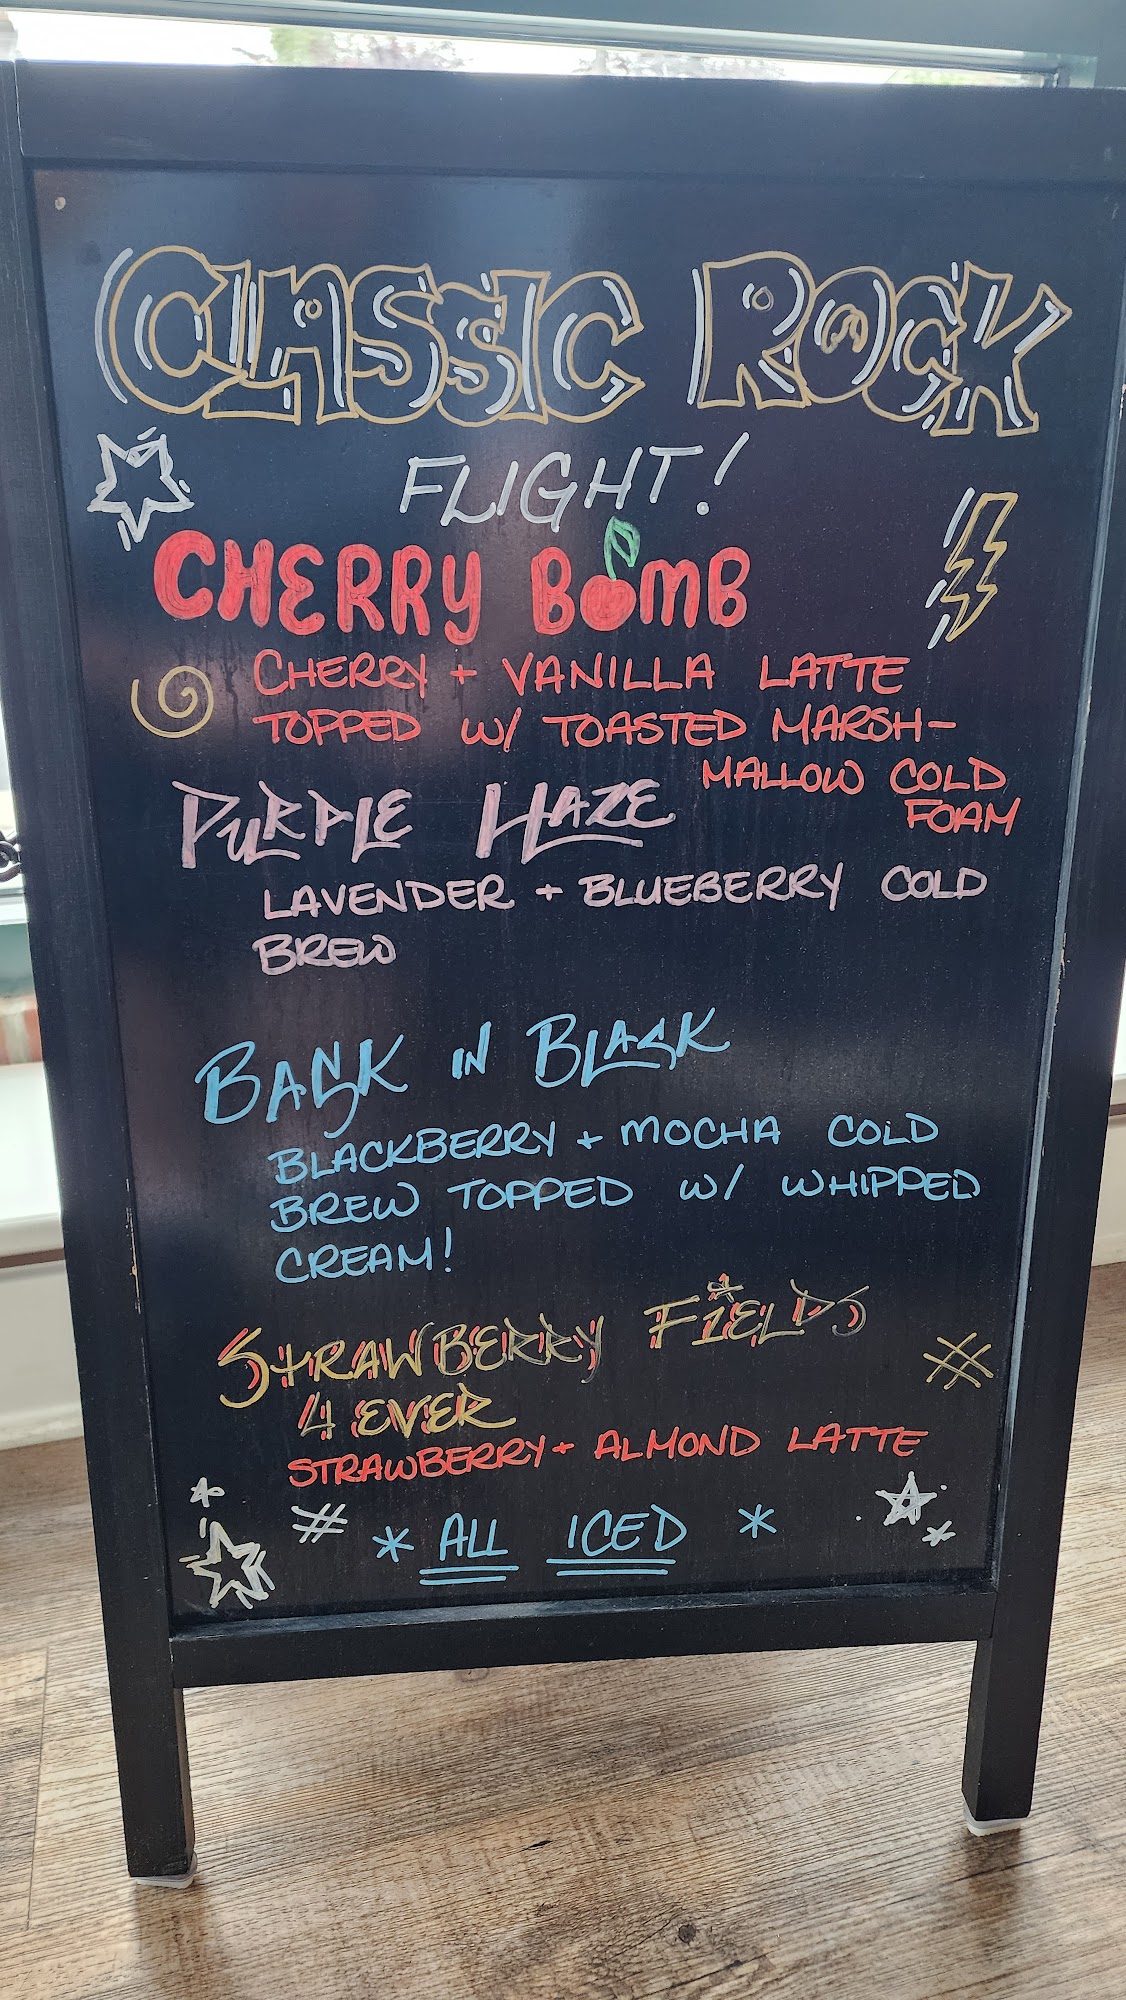 CLASSIC ROCK
FLIGHT!
CHERRY BOMB
CHERRY + VANILLA LATTE
TOPPED W/ TOASTED MARSH-
MALLOW COLD
FOAM
PURPLE HAZE
LAVENDER + BLUEBERRY COLD
BREW
BACK IN BLACK
BLACKBERRY + MOCHA COLD
BREW TOPPED W/ WHIPPED
CREAM!
STRAWBERRY FiELDS
4 EVER
STRAWBERRY + ALMOND LATTE
* ALL ICED *